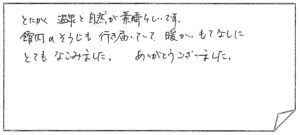 とにかく 温泉と自然が素晴らしいです。
館内のそうじも行き届いていて 暖かいもてなしに
とても なごみました。 ありがとうございました。